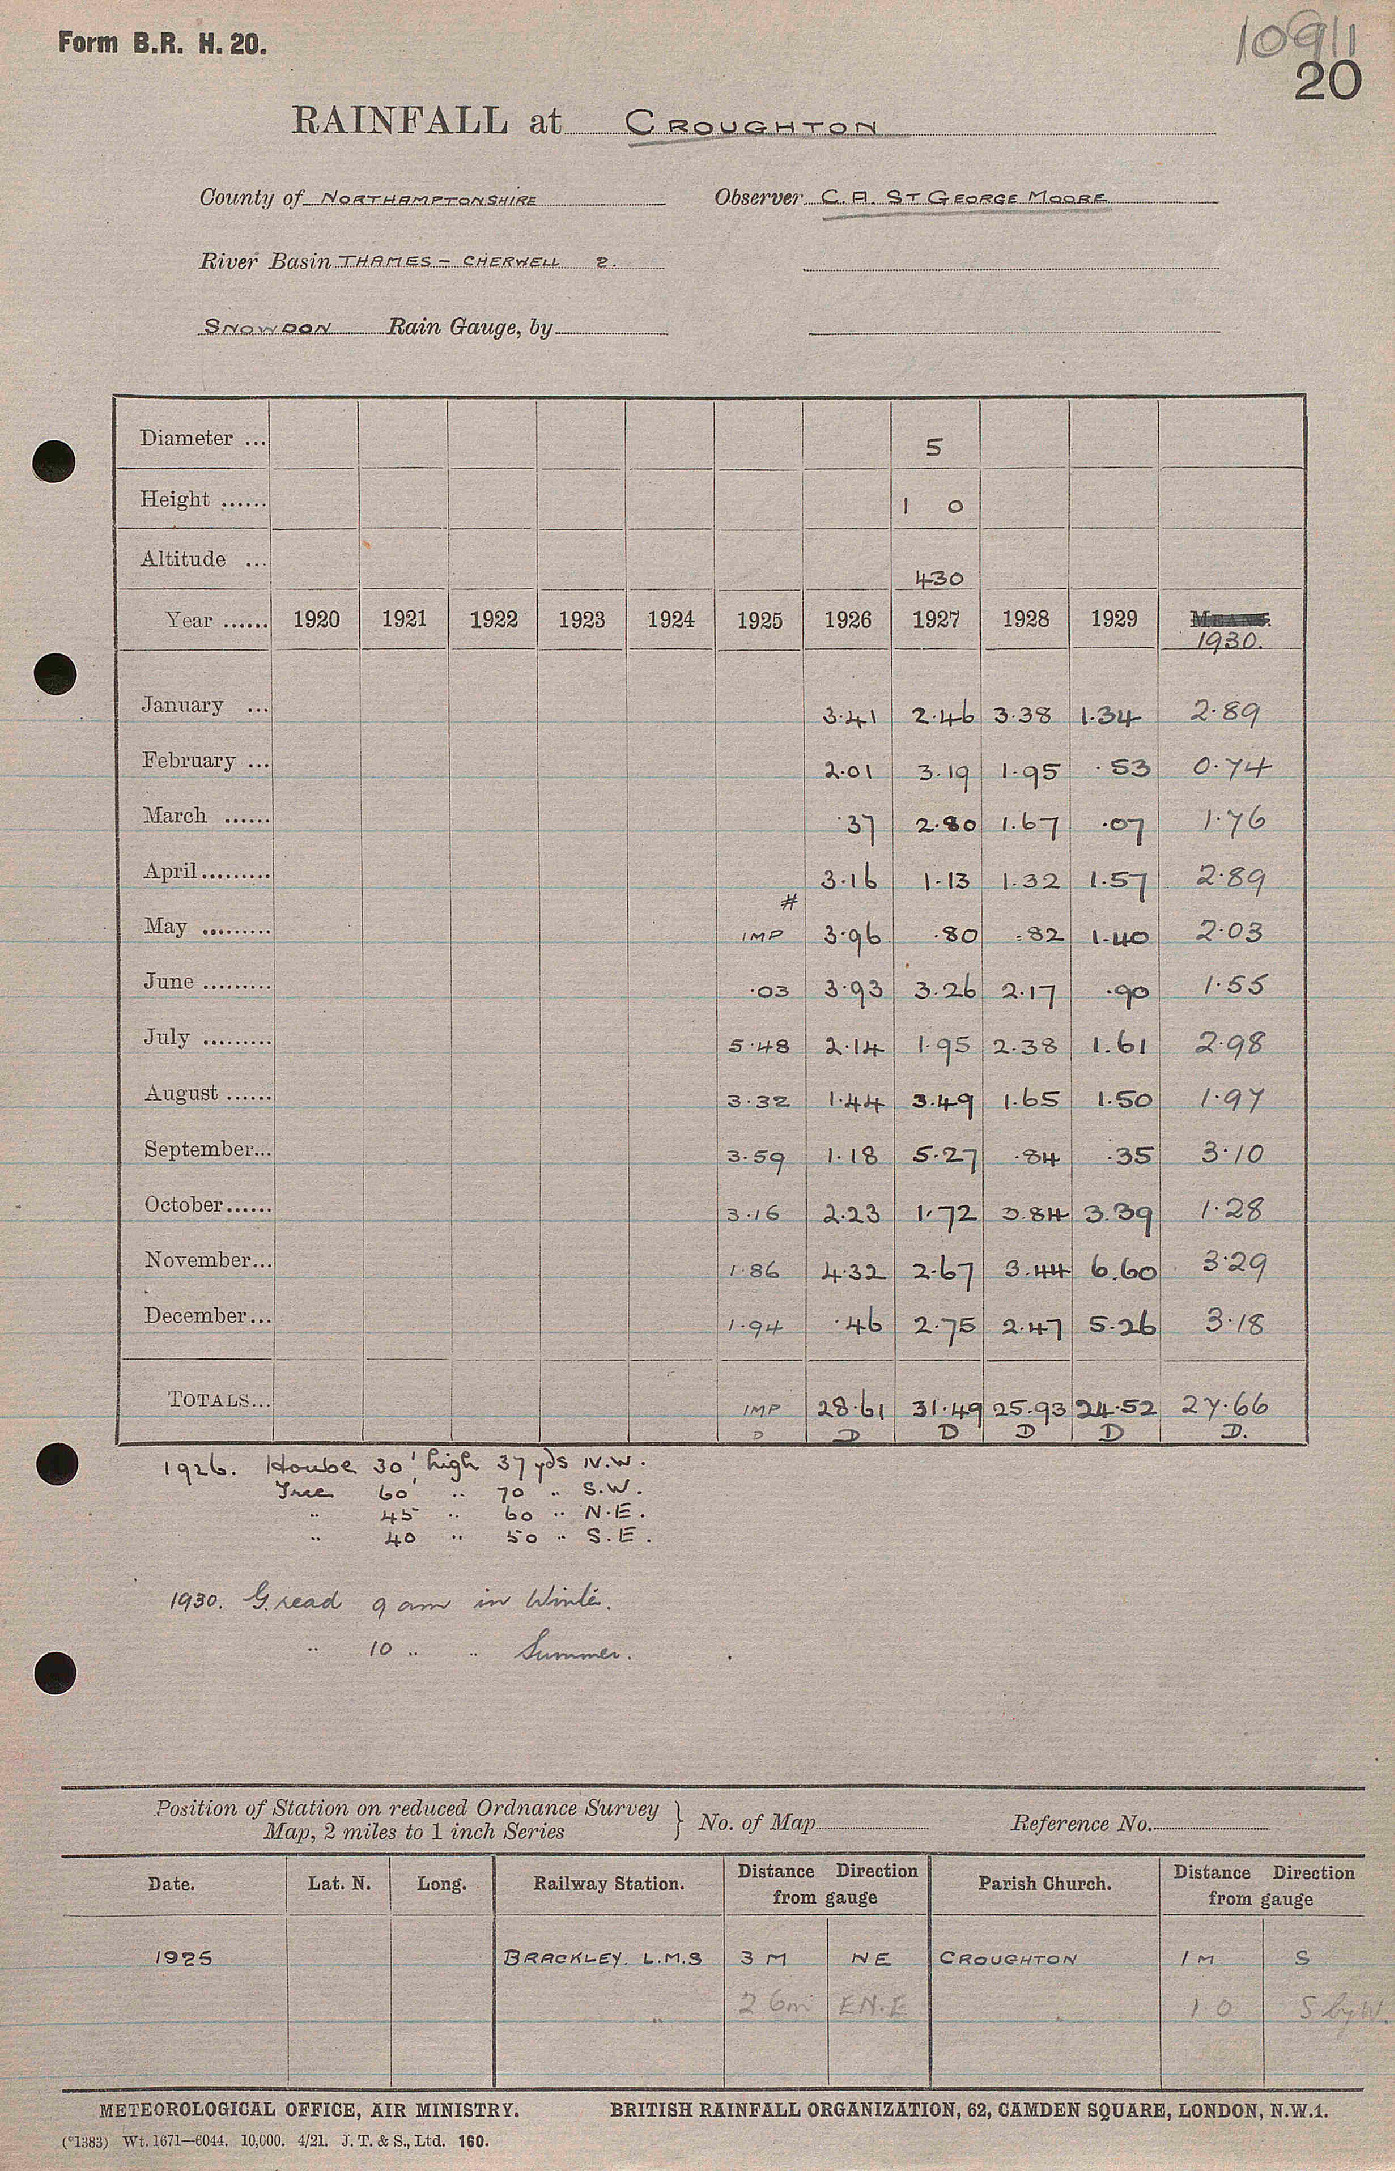 Form B.R. H. 20.
10911
20
RAINFALL at CROUGHTON
County of NORTHAMPTONSHIRE Observer C. A. ST GEORGE MOORE
River Basin THAMES – CHERWELL 2.
SNOWDON Rain Gauge, by
Diameter ... 5
Height ...... 1 0
Altitude ... 430
Year ...... 1920 1921 1922 1923 1924 1925 1926 1927 1928 1929 MEANS.
1930.
January ... 3.41 2.46 3.38 1.34 2.89
February ... 2.01 3.19 1.95 .53 0.74
March ...... .37 2.80 1.67 .07 1.76
April ......... 3.16 1.13 1.32 1.57 2.89
#
May ......... IMP 3.96 .80 .82 1.40 2.03
June ......... .03 3.93 3.26 2.17 .90 1.55
July ......... 5.48 2.14 1.95 2.38 1.61 2.98
August ...... 3.32 1.44 3.49 1.65 1.50 1.97
September... 3.59 1.18 5.27 .84 .35 3.10
October...... 3.16 2.23 1.72 3.84 3.39 1.28
November... 1.86 4.32 2.67 3.44 6.60 3.29
December... 1.94 .46 2.75 2.47 5.26 3.18
TOTALS... IMP 28.61 31.49 25.93 24.52 27.66
D D D D D D.
1926. House 30' high 37 yds N.W.
Tree 60' .. 70 .. S.W.
.. 45 .. 60 .. N.E.
.. 40 .. 50 .. S.E.
1930. G. read 9 am in Winter.
.. 10 .. .. Summer.
Position of Station on reduced Ordnance Survey
Map, 2 miles to 1 inch Series } No. of Map Reference No.
Date. Lat. N. Long. Railway Station. Distance Direction from gauge Parish Church. Distance Direction from gauge
1925 BRACKLEY. L.M.S 3 M NE CROUGHTON 1 M S
2 6m EN.E 1 0 S by W.
METEOROLOGICAL OFFICE, AIR MINISTRY. BRITISH RAINFALL ORGANIZATION, 62, CAMDEN SQUARE, LONDON, N.W.1.
(*1383) Wt. 1671—6044. 10,000. 4/21. J. T. & S., Ltd. 160.